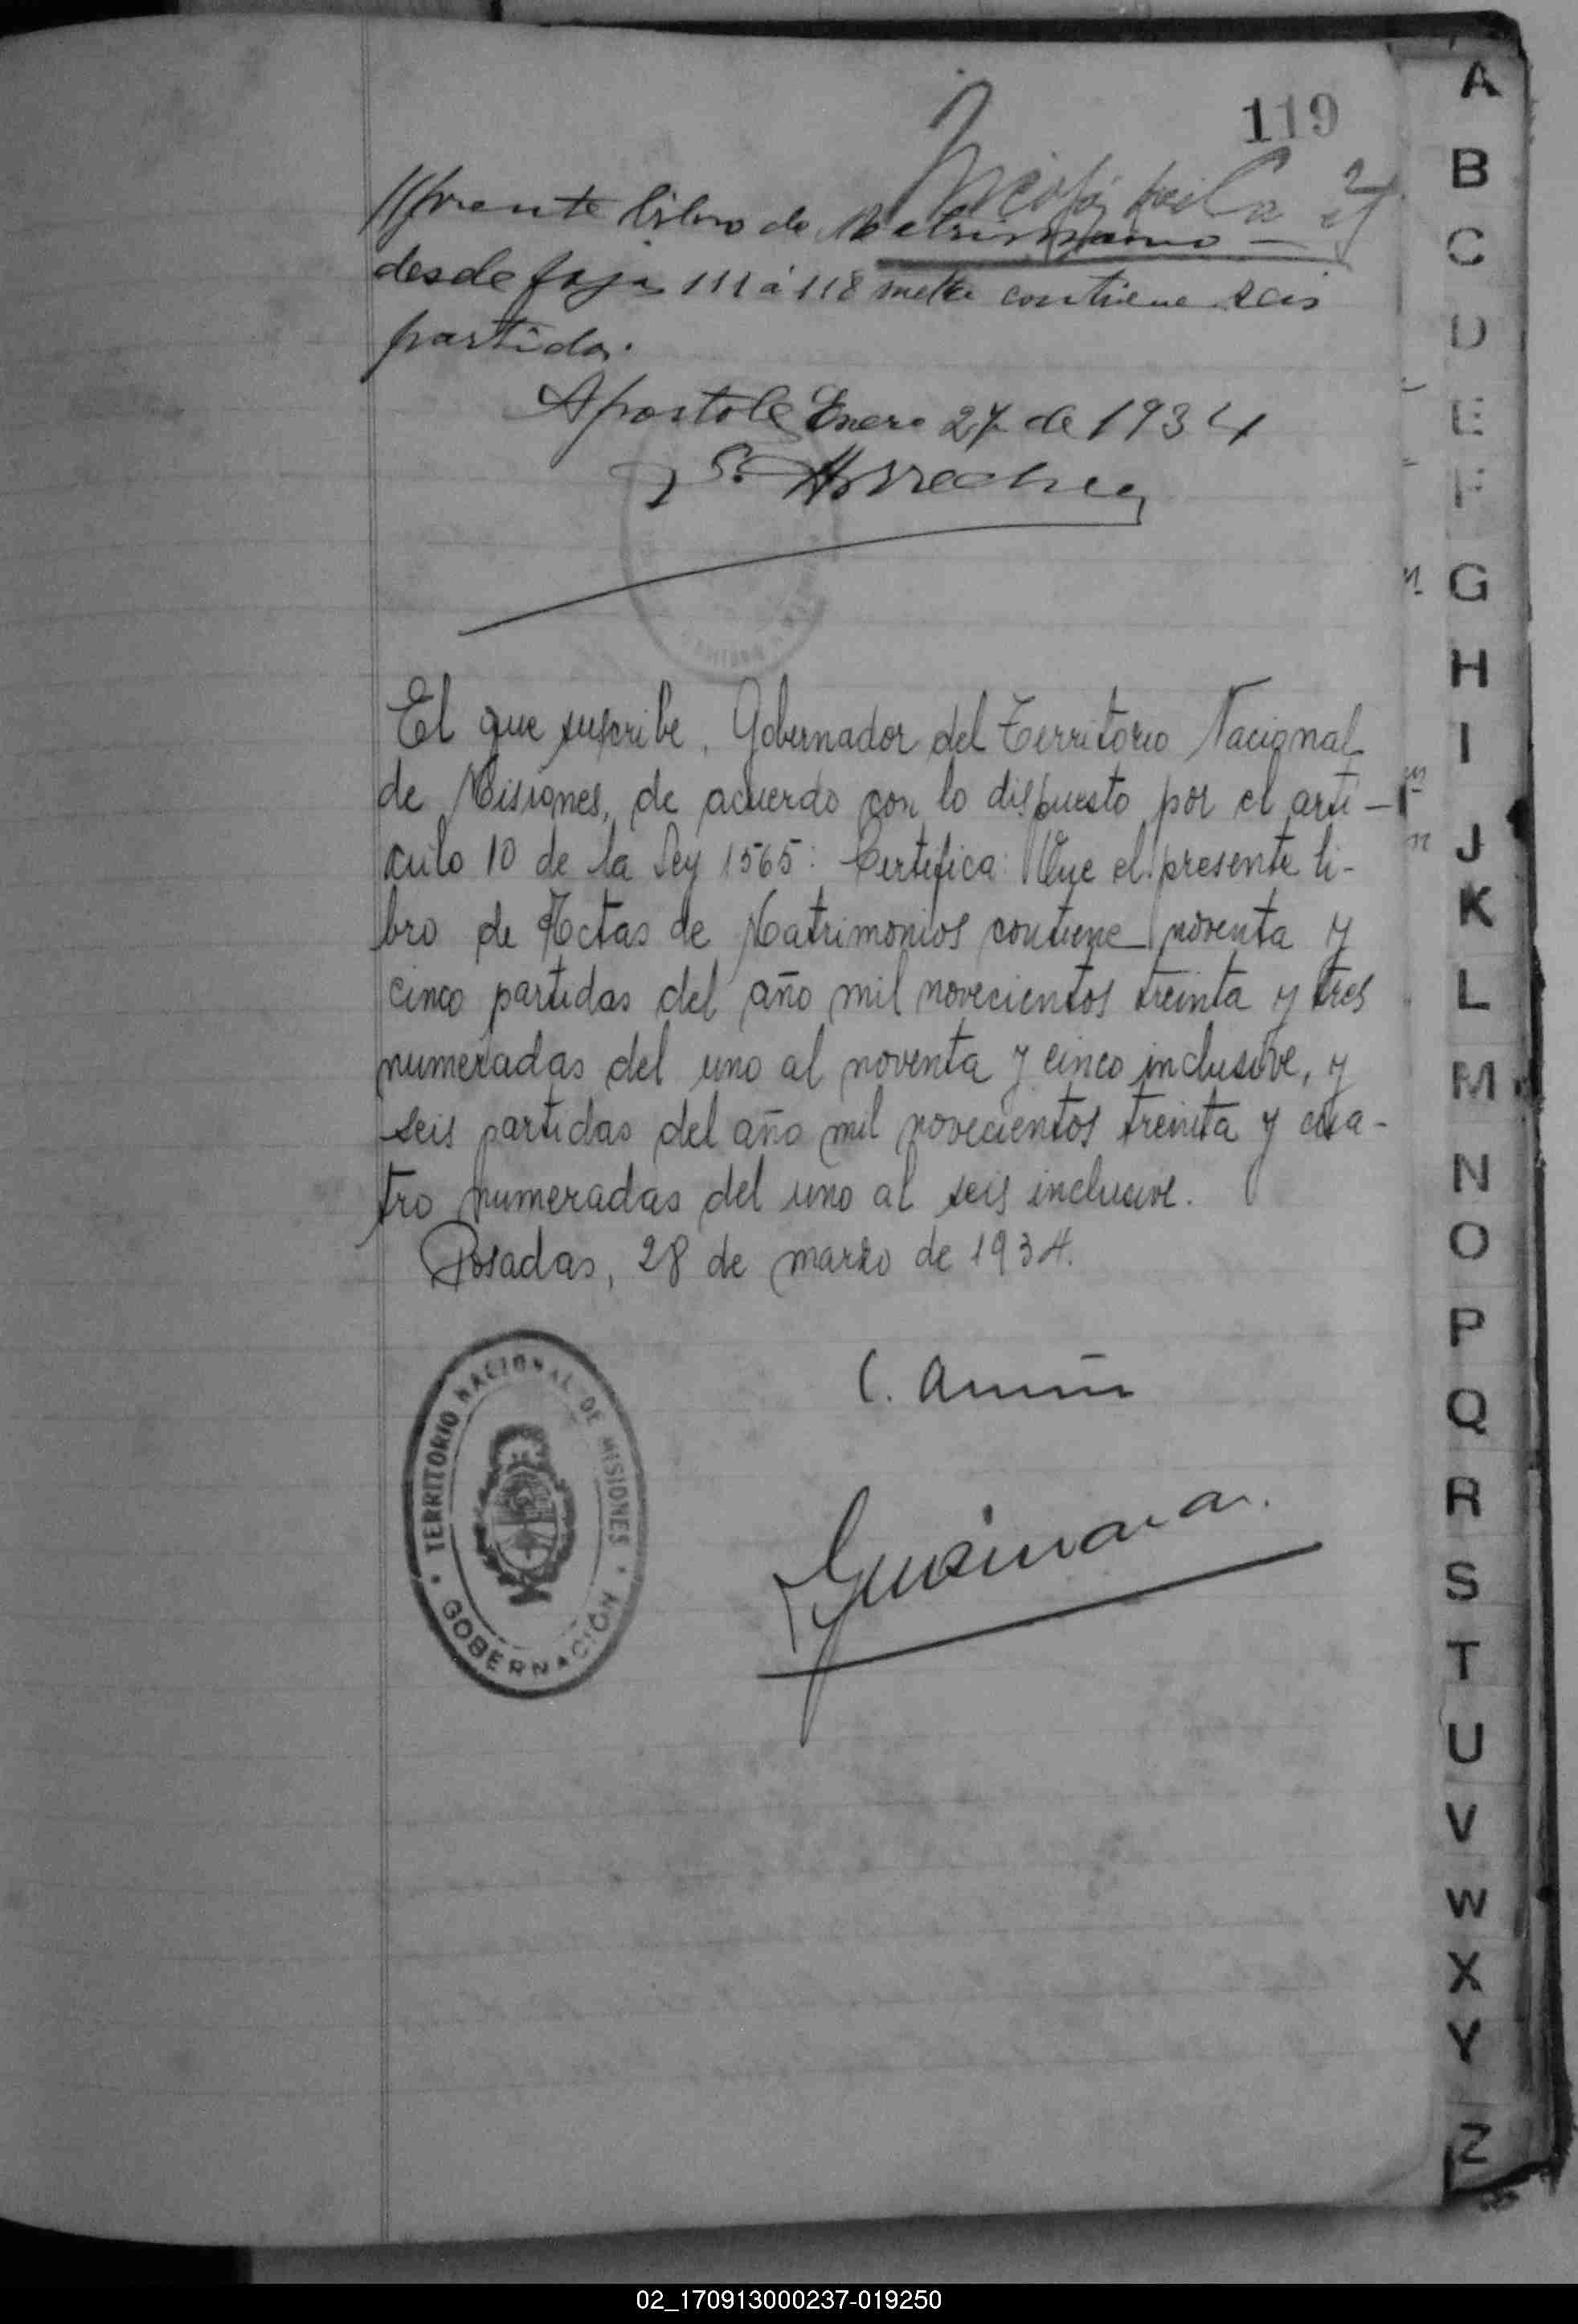 119
//frente libro de Matrimonio —
desde fojas 111 á 118 contiene seis
partidas.
Apostoles Enero 27 de 1934
El que suscribe, Gobernador del Territorio Nacional
de Misiones, de acuerdo con lo dispuesto por el artí-
culo 10 de la Ley 1565: Certifica: Que el presente li-
bro de Actas de Matrimonios contiene noventa y
cinco partidas del año mil novecientos treinta y tres
numeradas del uno al noventa y cinco inclusive, y
seis partidas del año mil novecientos treinta y cua-
tro numeradas del uno al seis inclusive.
Posadas, 28 de marzo de 1934.
TERRITORIO NACIONAL DE MISIONES
GOBERNACIÓN
A
B
C
D
E
F
G
H
I
J
K
L
M
N
O
P
Q
R
S
T
U
V
W
X
Y
Z
02_170913000237-019250